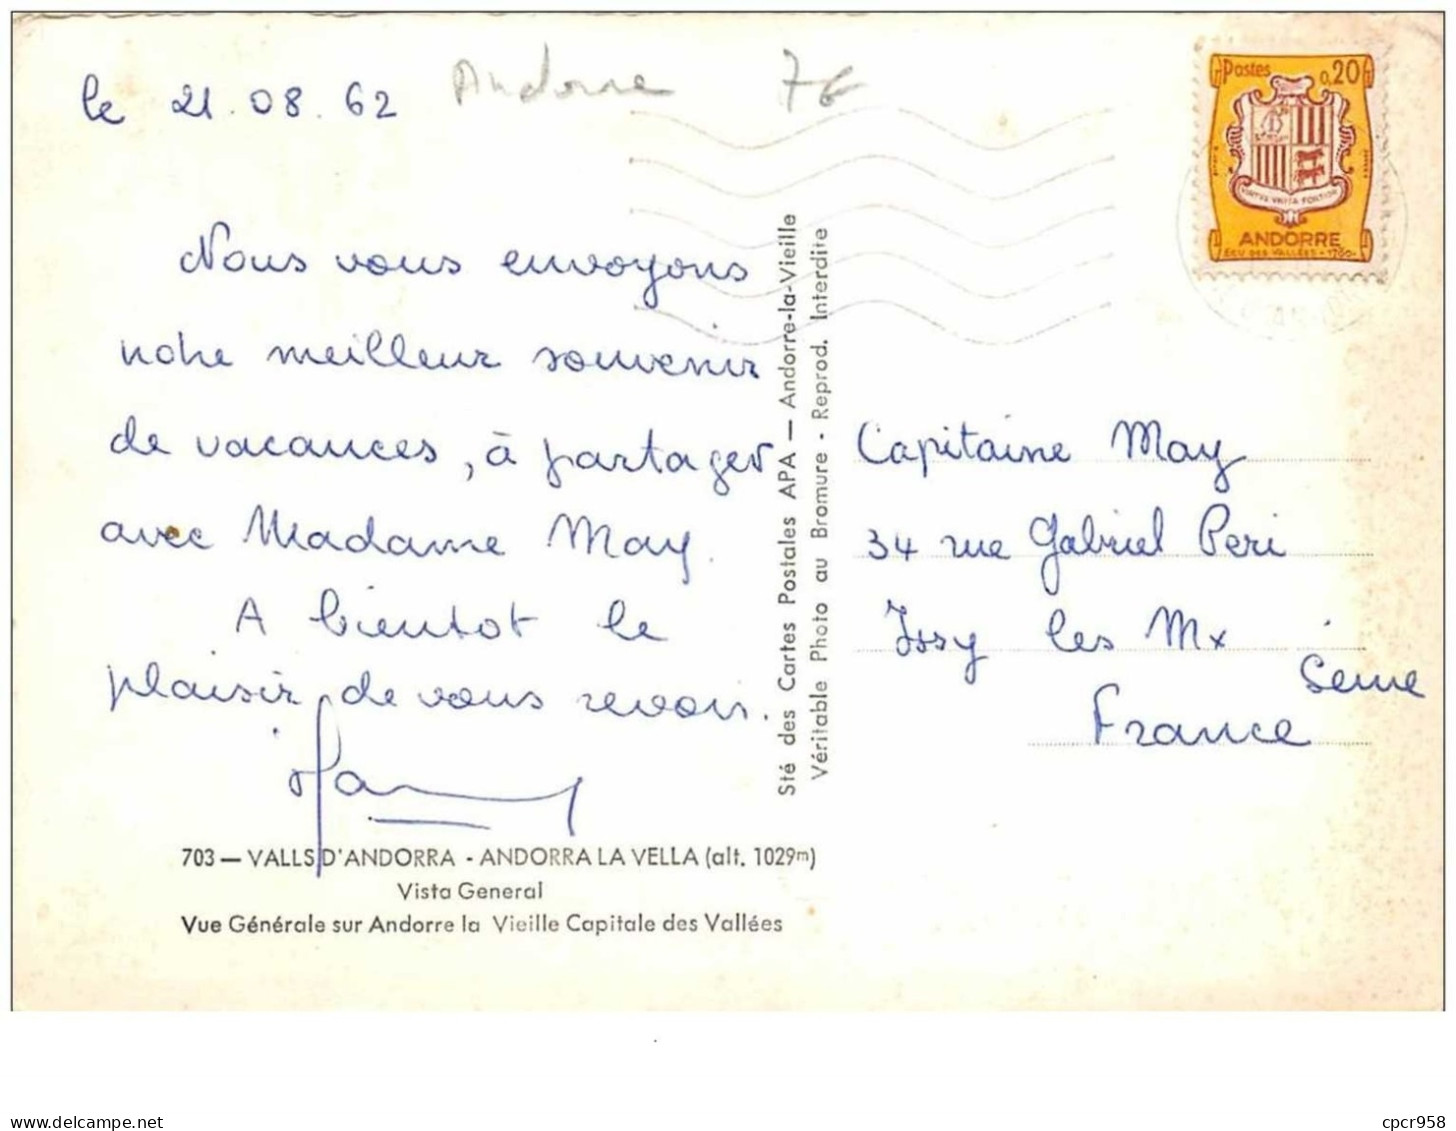 le 21.08.62
Andorre 7€
Postes 0,20
ANDORRE
ECU DES VALLÉES - 1760-
Nous vous envoyons
notre meilleur souvenir
de vacances, à partager
avec Madame May.
A bientot le
plaisir de vous revoir.
703 — VALLS D'ANDORRA - ANDORRA LA VELLA (alt. 1029m)
Vista General
Vue Générale sur Andorre la Vieille Capitale des Vallées
Sté des Cartes Postales APA — Andorre-la-Vieille
Véritable Photo au Bromure - Reprod. Interdite
Capitaine May
34 rue Gabriel Peri
Issy les Mx
Seine
France
cpcr958